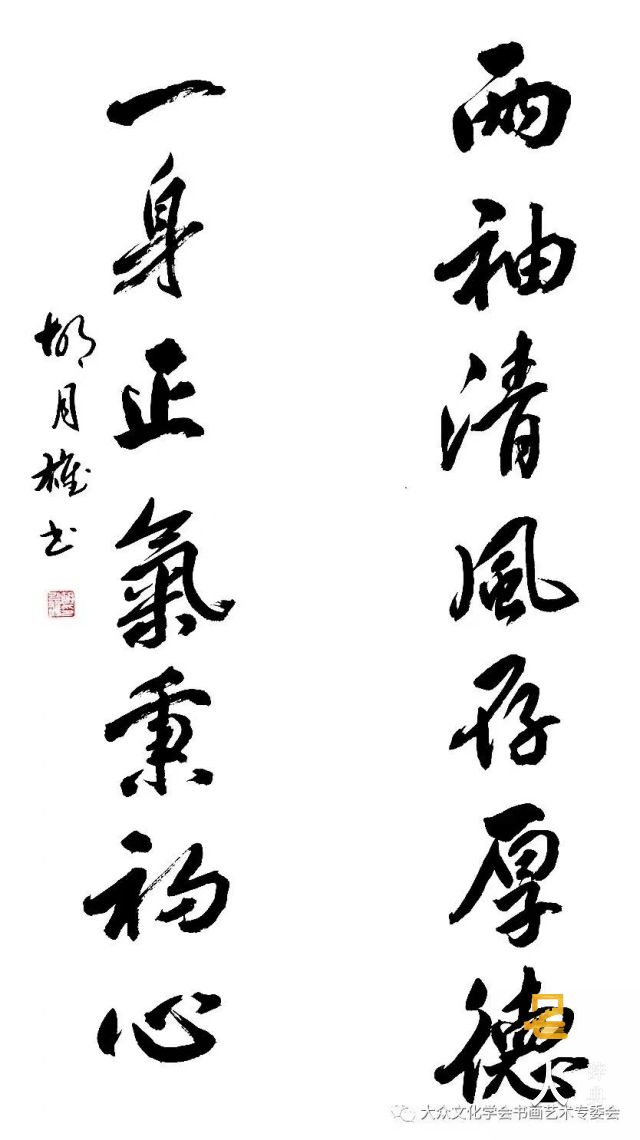 兩袖清風存厚德
一身正氣秉初心
胡月雄书
名人
辞典
大众文化学会书画艺术专委会